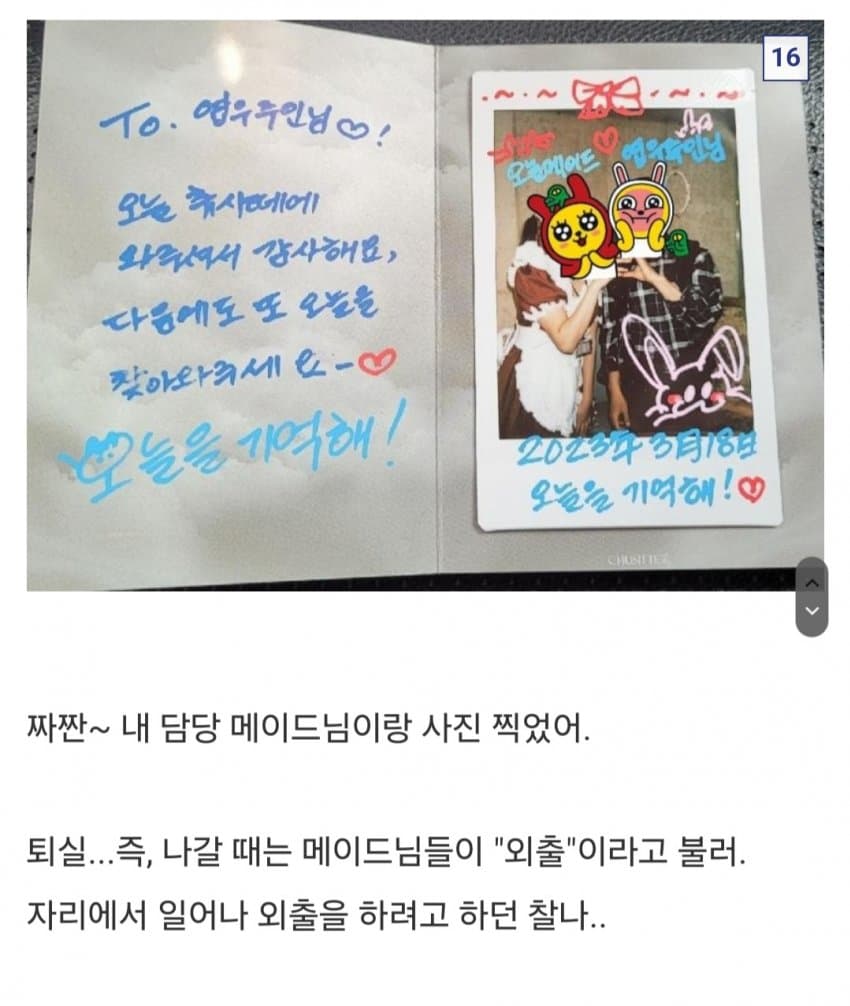 16
To. 영우주인님♡!
오늘 츄사떼에
와주셔서 감사해요,
다음에도 또 오늘을
찾아와주세요-♡
오늘을 기억해!
오늘메이드♡영우주인님
2023年 3月18日
오늘을 기억해!♡
짜짠~ 내 담당 메이드님이랑 사진 찍었어.
퇴실...즉, 나갈 때는 메이드님들이 "외출"이라고 불러.
자리에서 일어나 외출을 하려고 하던 찰나..